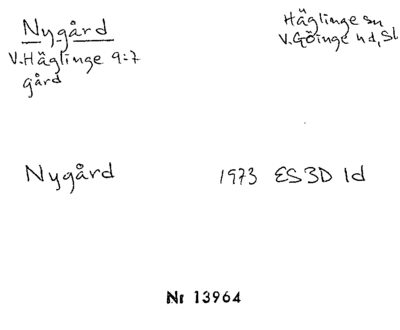 Nygård
Häglinge sn
V. Häglinge 9:7
V. Göinge hd, Sk
gård
Nygård 1973 ES3D 1d
Nr 13964